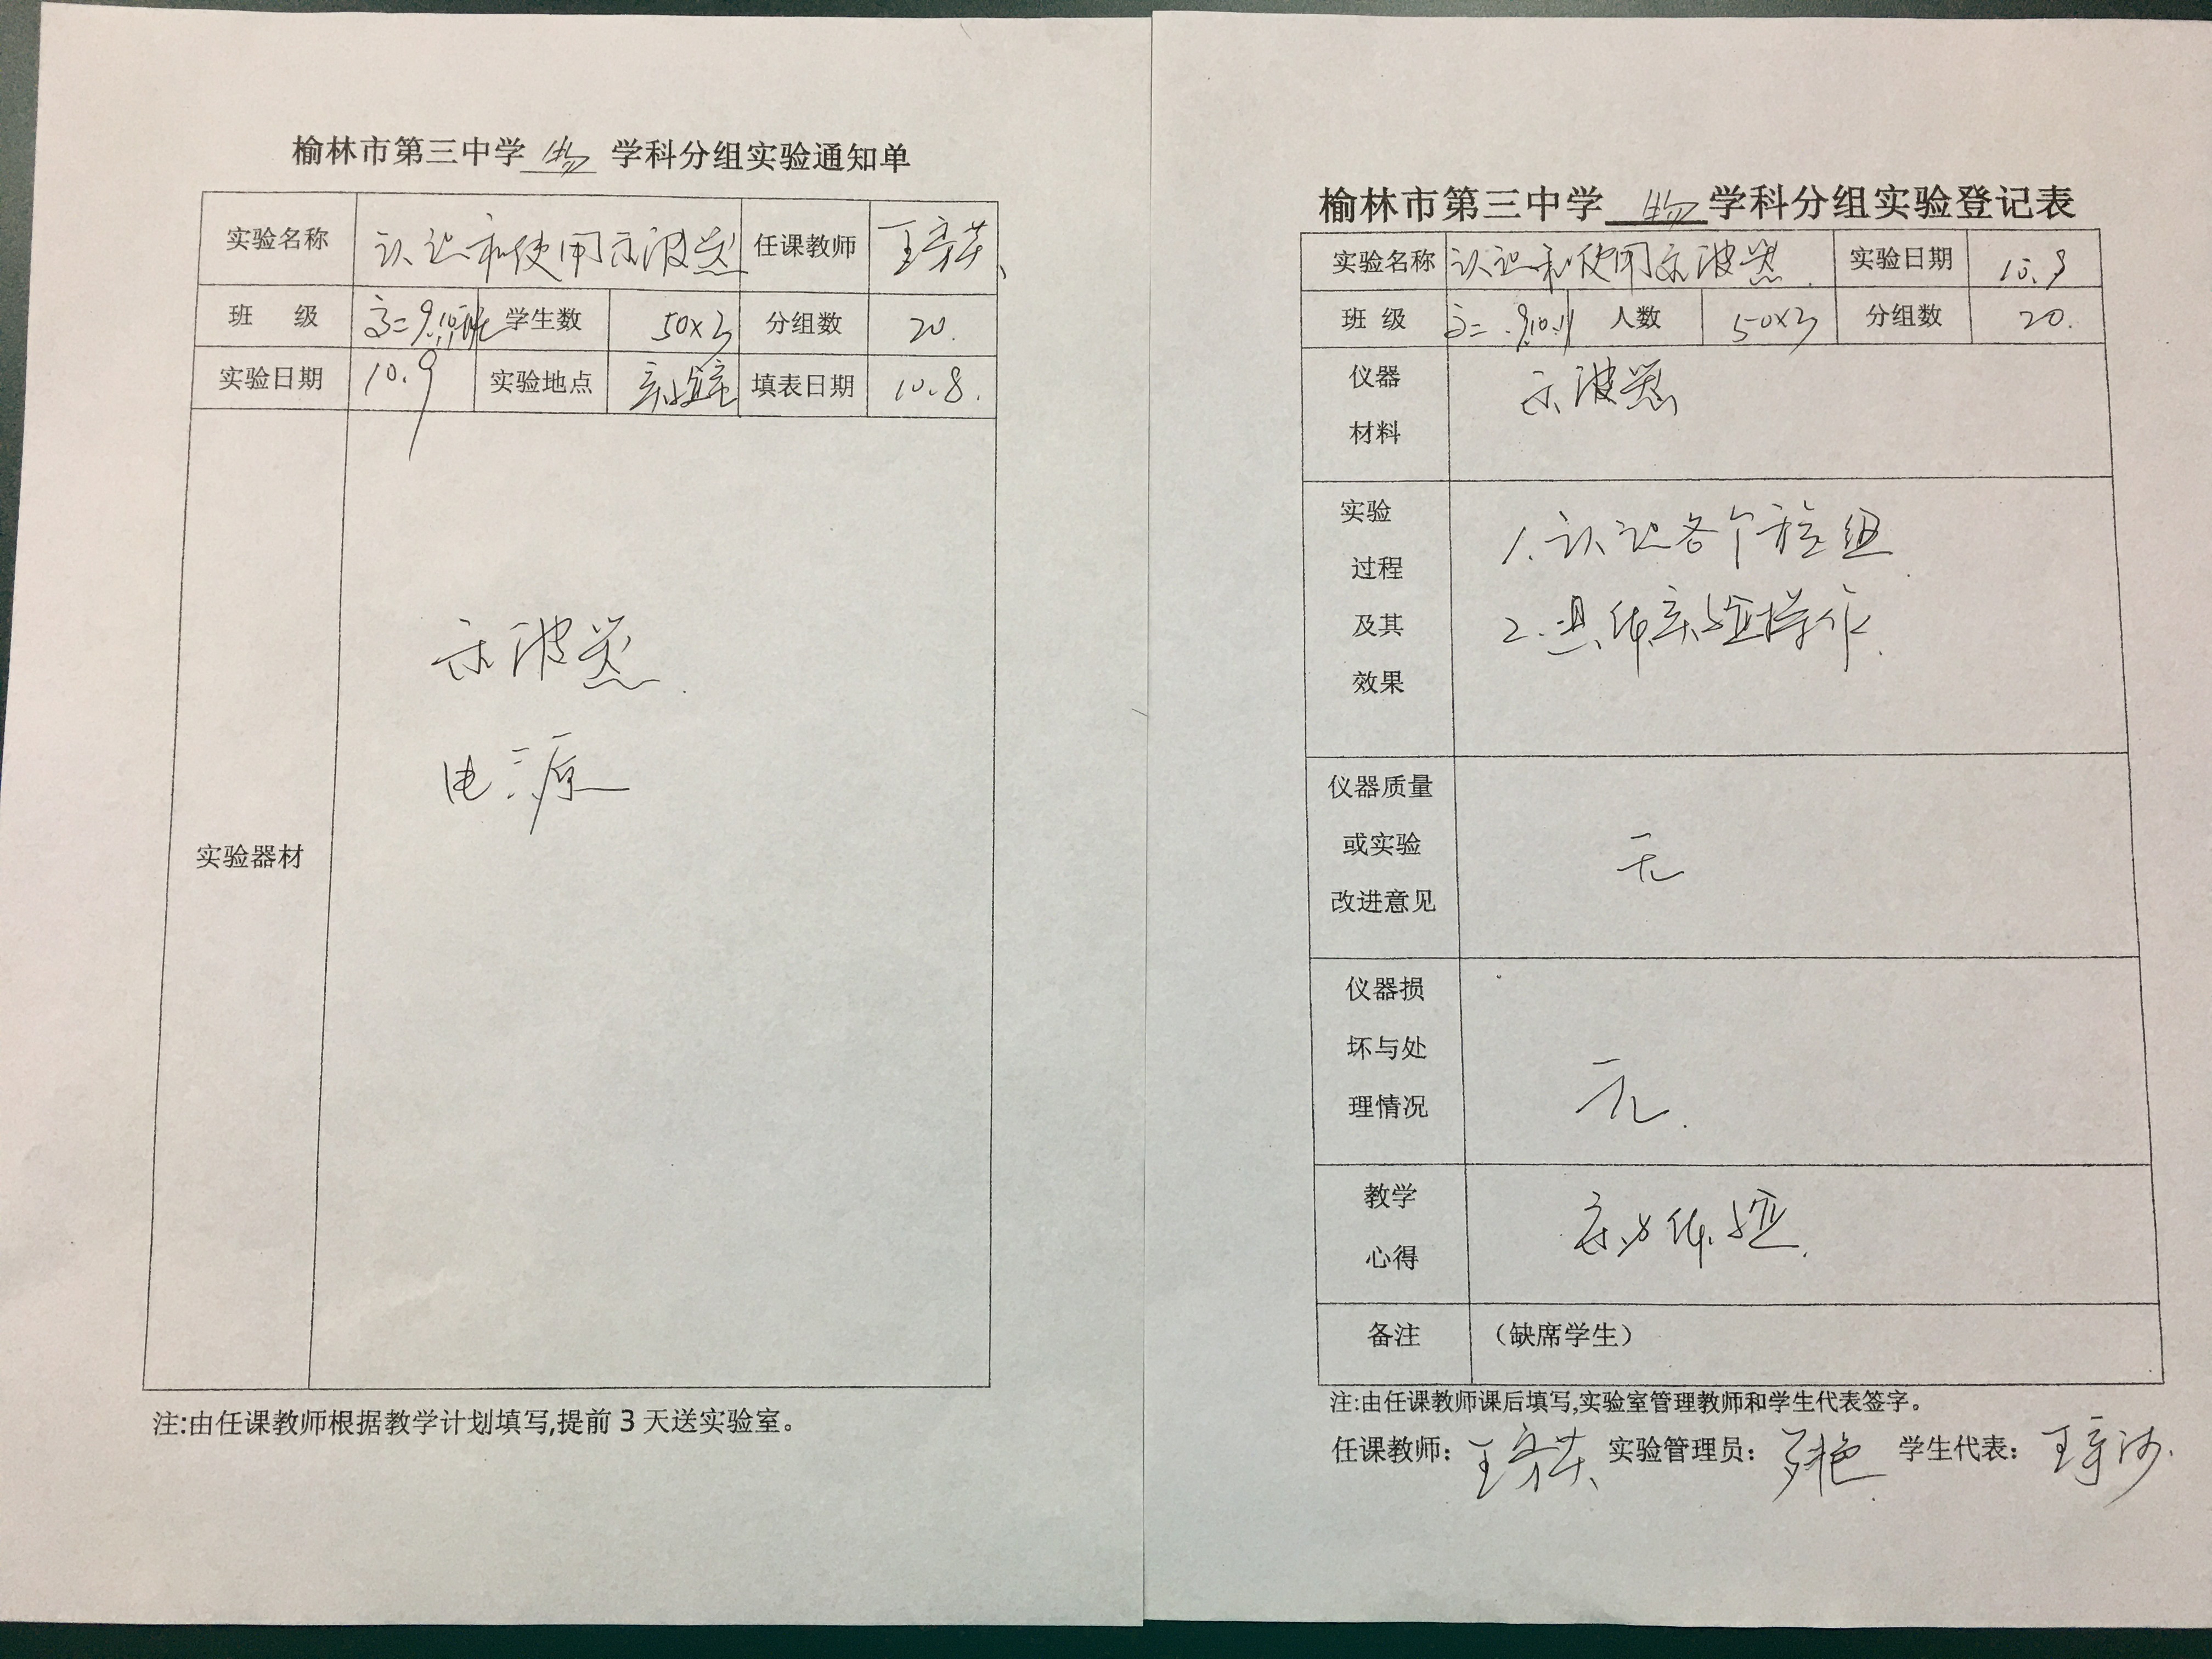 榆林市第三中学 物 学科分组实验通知单
实验名称 认识和使用示波器 任课教师
班 级 高二9.10.11班 学生数 50×3 分组数 20.
实验日期 10.9 实验地点 实验室 填表日期 10.8.
实验器材
示波器.
电源
注:由任课教师根据教学计划填写,提前3天送实验室。
榆林市第三中学 物 学科分组实验登记表
实验名称 认识和使用示波器 实验日期 10.9
班 级 高二.9.10.11 人数 50×3 分组数 20.
仪器
材料
示波器
实验
过程
及其
效果
1.认识各个旋钮.
2.具体实验操作.
仪器质量
或实验
改进意见
无
仪器损
坏与处
理情况
无.
教学
心得
亲身体验.
备注 （缺席学生）
注:由任课教师课后填写,实验室管理教师和学生代表签字。
任课教师: 实验管理员: 学生代表: